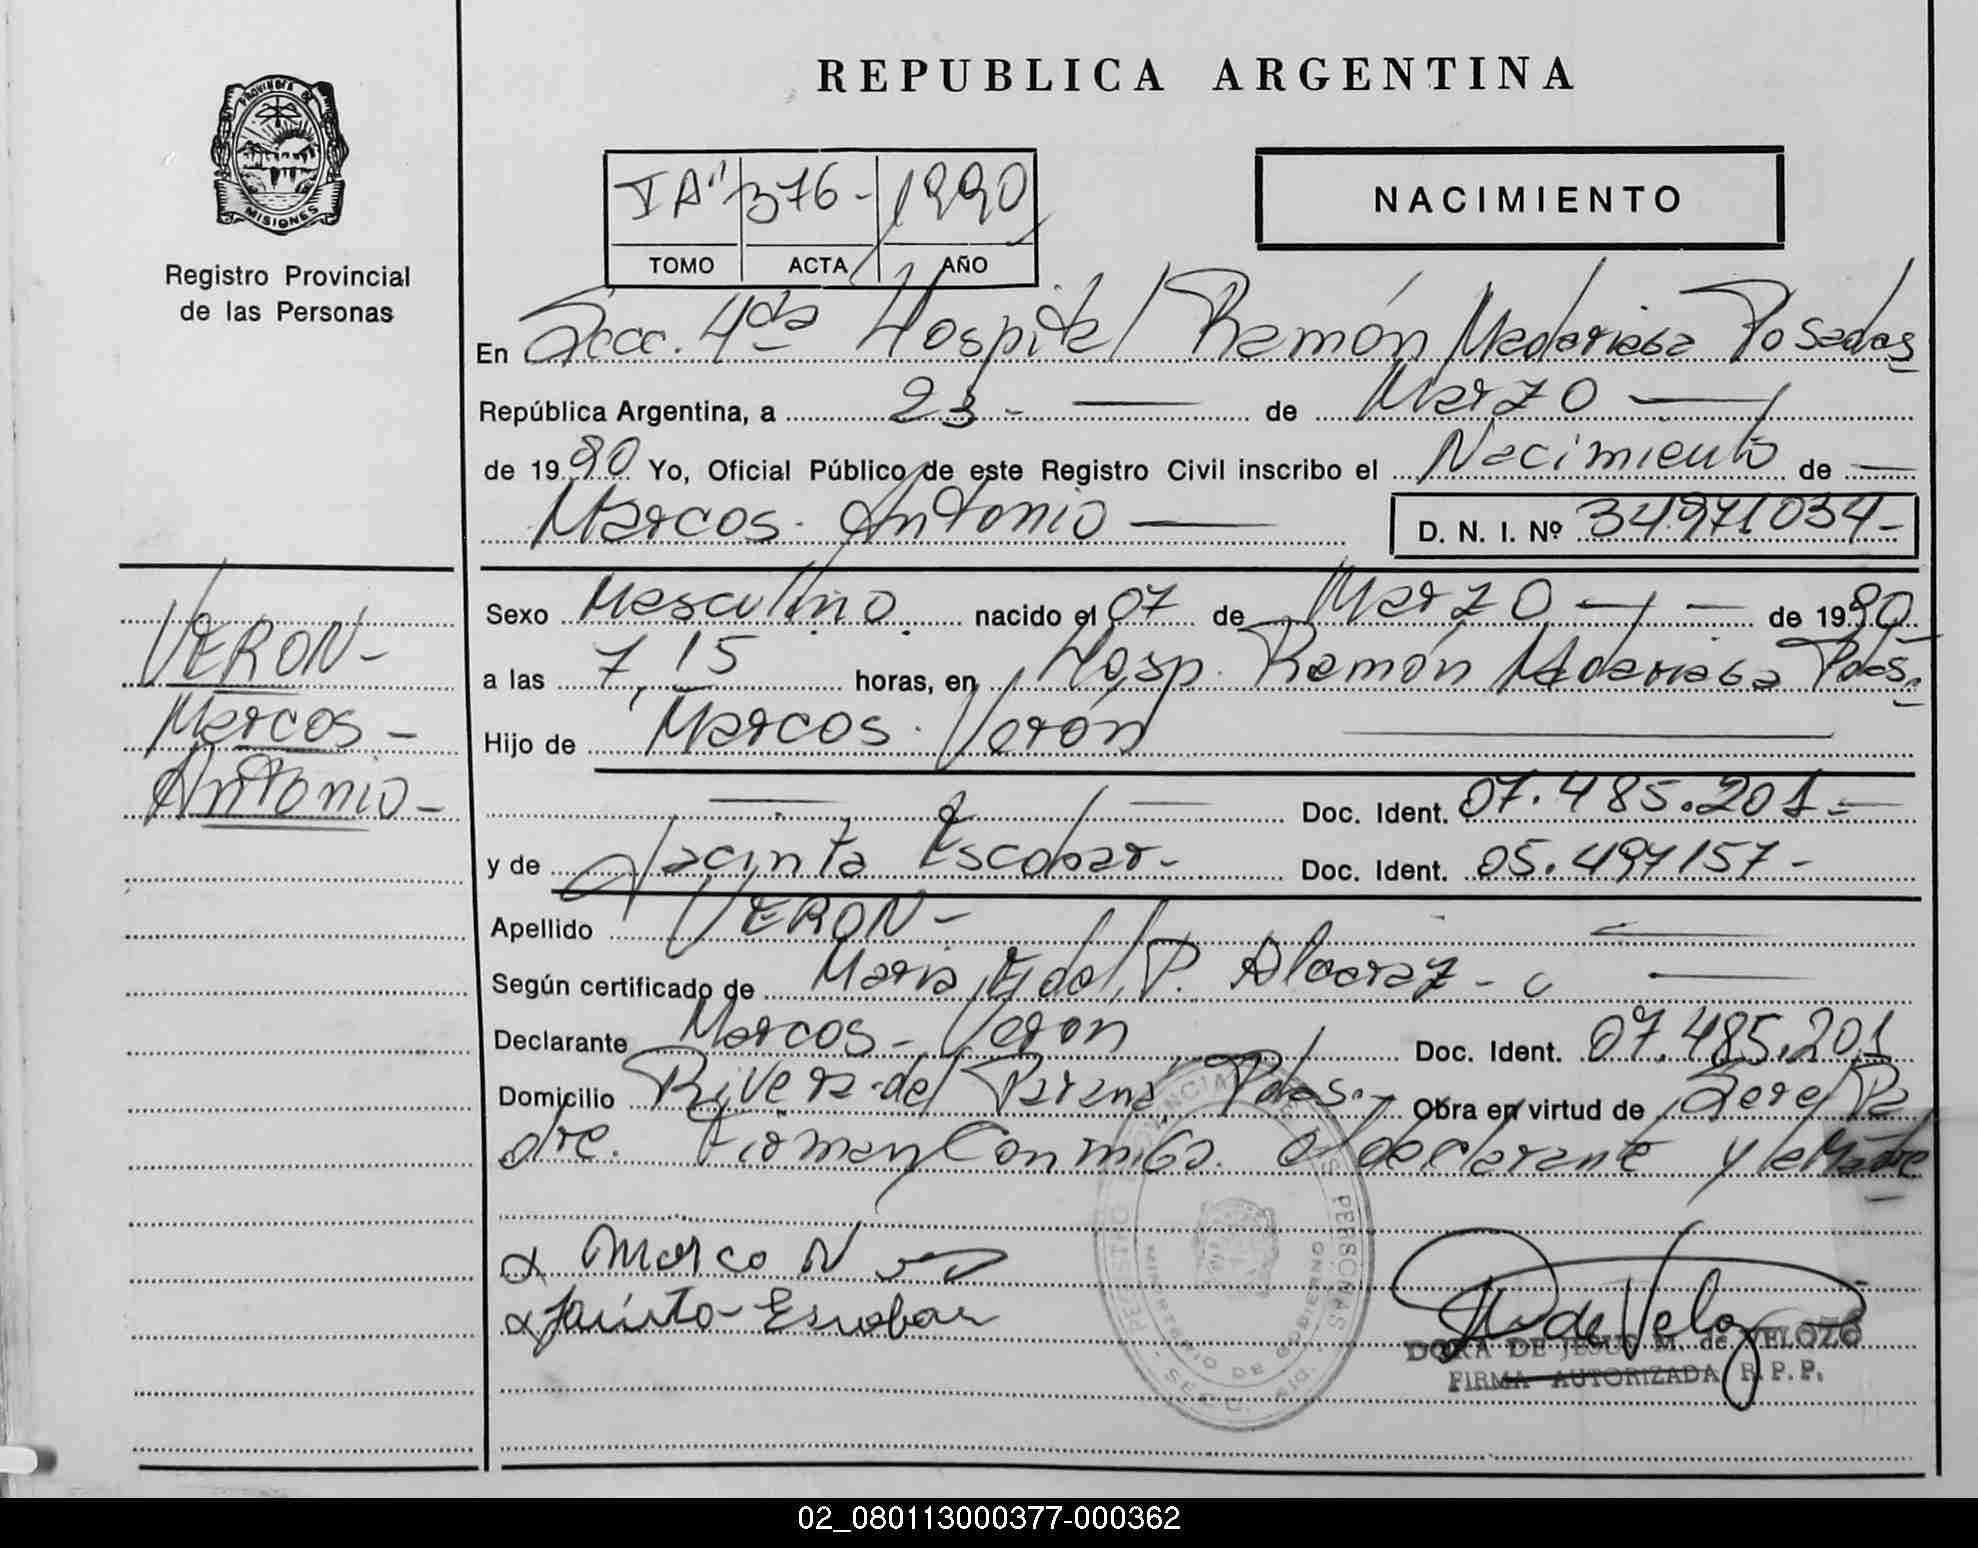 PROVINCIA DE
MISIONES
Registro Provincial
de las Personas
REPUBLICA ARGENTINA
IA" 376- 1990
TOMO ACTA AÑO
NACIMIENTO
En Secc. 4da Hospital Ramón Madariaga Posadas
República Argentina, a 23- — de Marzo —
de 1990 Yo, Oficial Público de este Registro Civil inscribo el Nacimiento de —
Marcos Antonio — D. N. I. Nº 34.971034-
VERON-
Marcos-
Antonio-
Sexo Masculino nacido el 07 de Marzo — — de 1990
a las 7,15 horas, en Hosp. Ramón Madariaga Pdas.
Hijo de Marcos Verón —
— — Doc. Ident. 07.485.201-
y de Jacinta Escobar- Doc. Ident. 05.497157-
Apellido VERON-
Según certificado de Maria Vidal P. Alcaraz -
Declarante Marcos - Veron Doc. Ident. 07.485.201
Domicilio Rivera del Paraná, Pdas. Obra en virtud de Ser el Pa
dre. Firman Conmigo el declarante y la Madre
x Marco V
x Jacinta - Escobar
REGISTRO PROVINCIAL DE LAS PERSONAS
MINISTERIO DE GOBIERNO
DORA DE JESUS M. de VELOZO
FIRMA AUTORIZADA R. P. P.
02_080113000377-000362